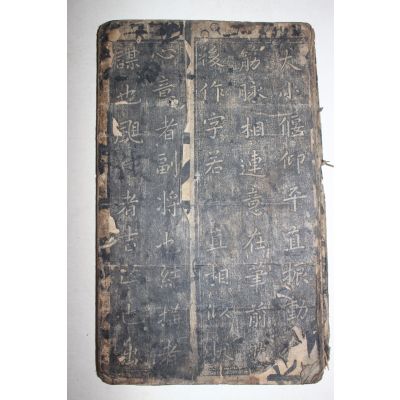 大小偃仰平直振動
筋脉相連意在筆前
後作字若 直相似
心意者副將也結構者
謀也颺筆者吉凶也出